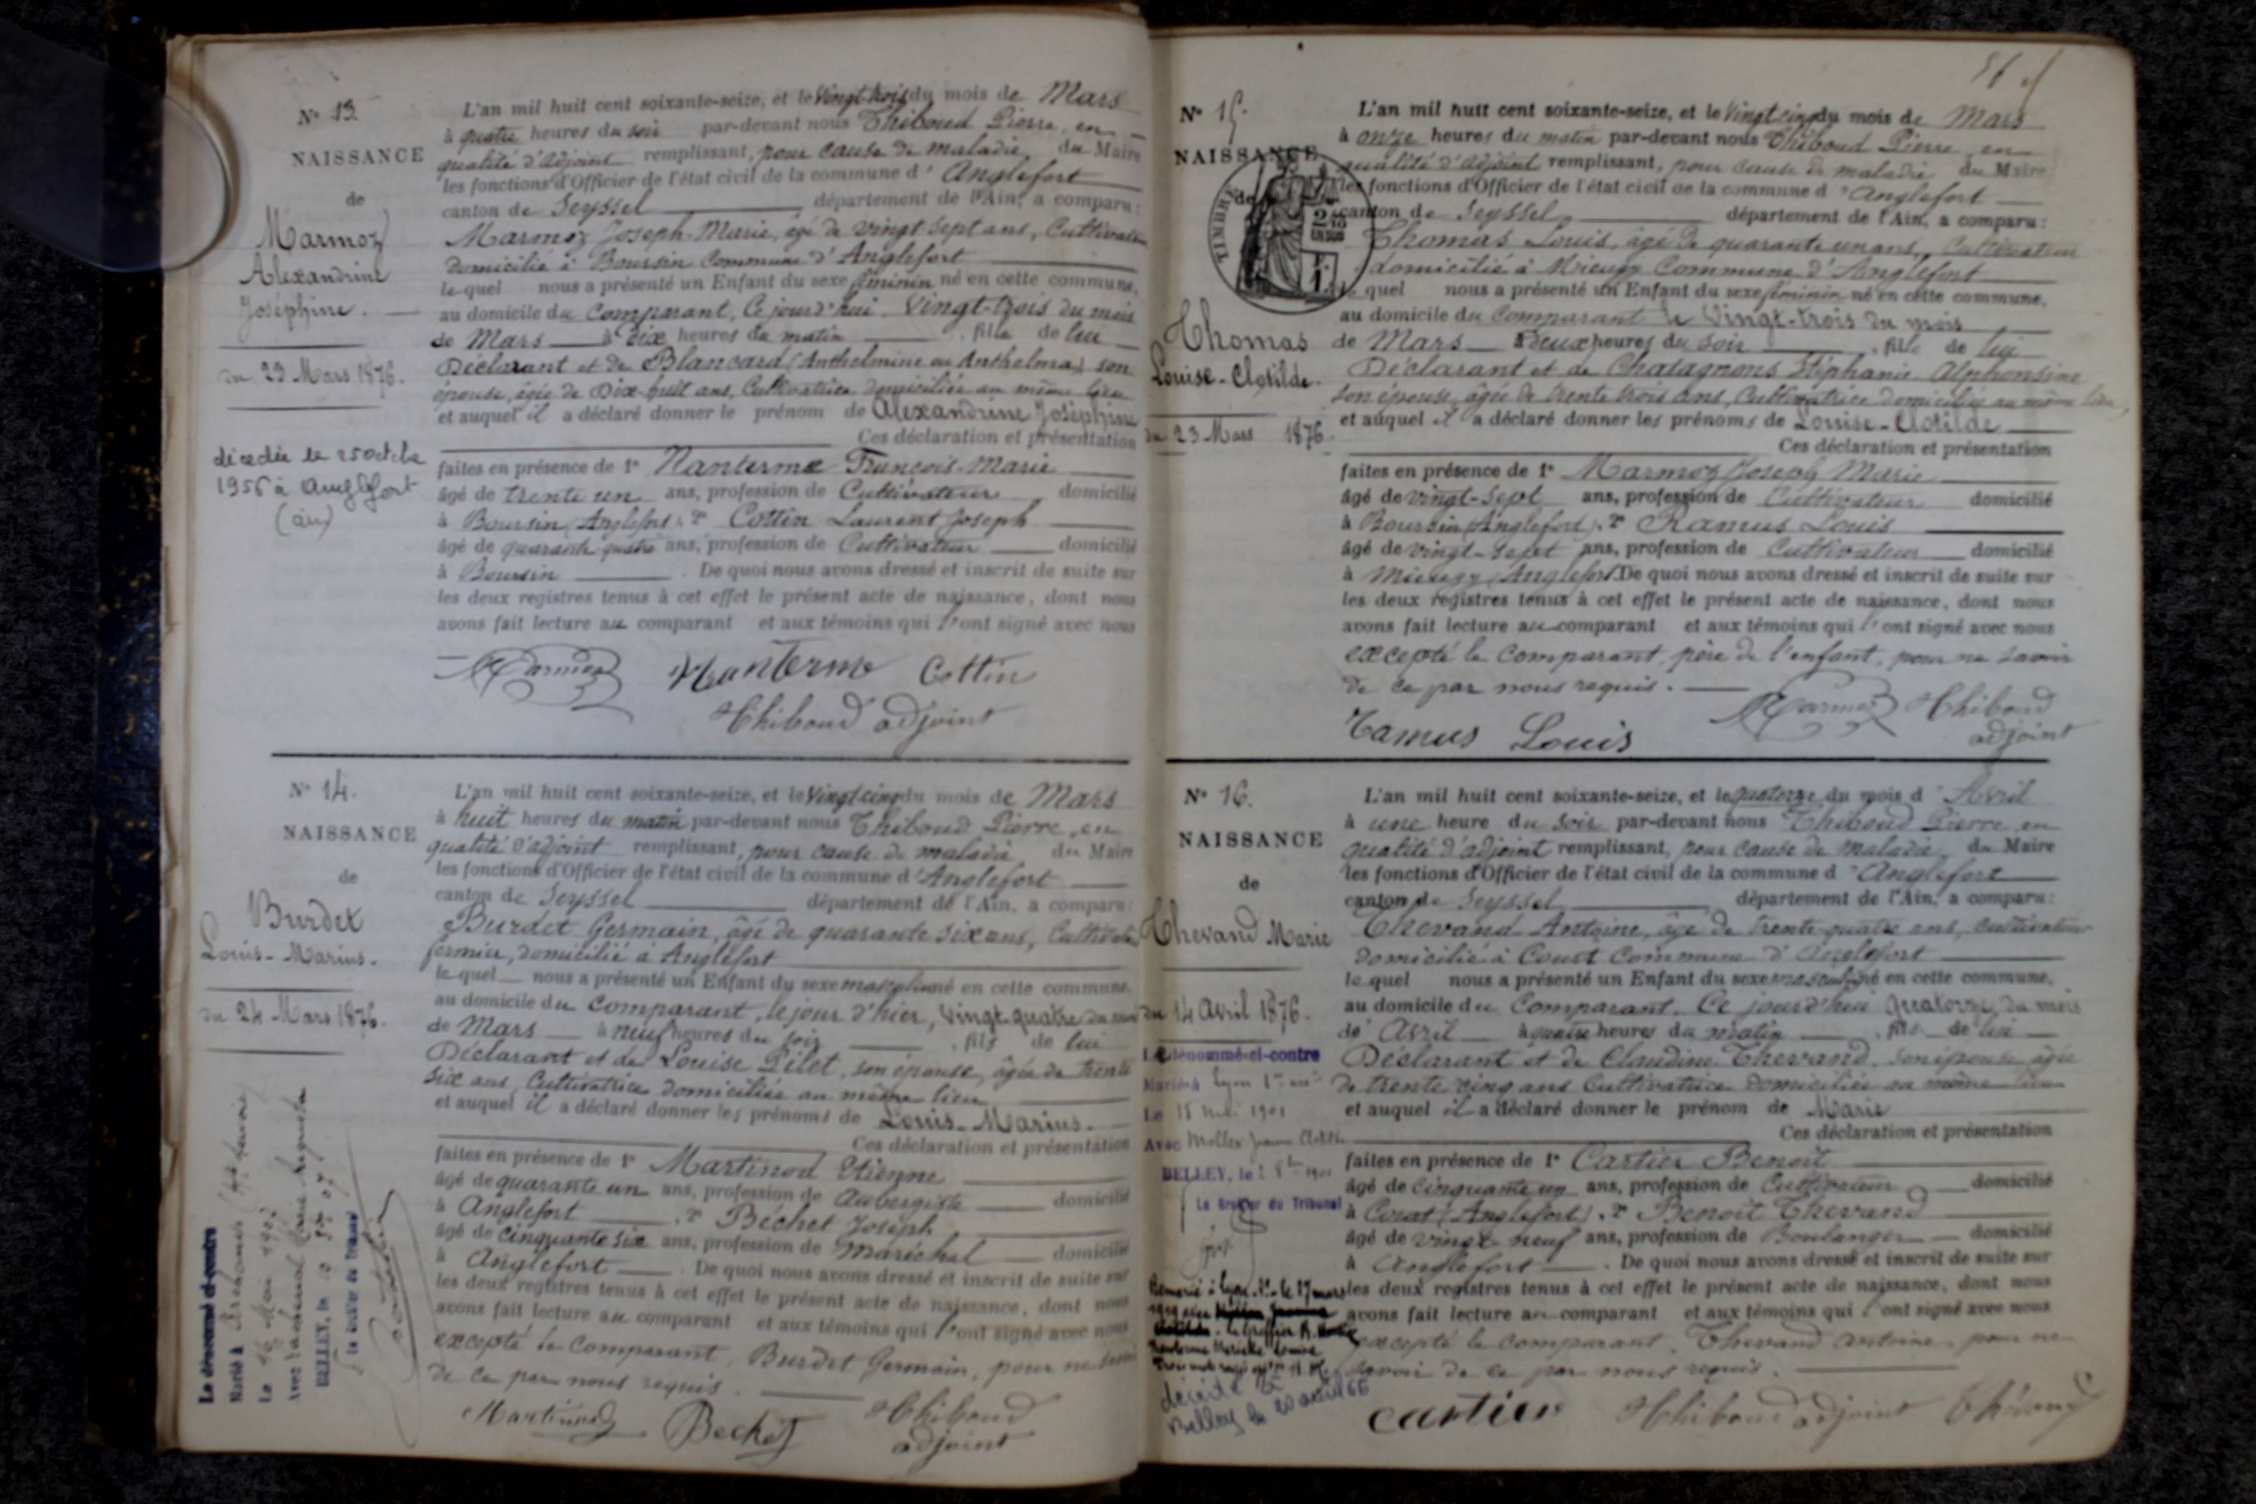 N° 13.
NAISSANCE
de
Marmoz
Alexandrine
Joséphine.
du 23 Mars 1876.
décédée le 25 octobre
1956 à Anglefort
(ain)
L'an mil huit cent soixante-seize, et le Vingt-trois du mois de Mars
à quatre heures du soir par-devant nous Thiboud Pierre, en
qualité d'adjoint remplissant, pour cause de maladie, du Maire
les fonctions d'Officier de l'état civil de la commune d'Anglefort
canton de Seyssel département de l'Ain, a comparu:
Marmoz Joseph-Marie, âgé de vingt sept ans, Cultivateur
domicilié à Boursin Commune d'Anglefort
lequel nous a présenté un Enfant du sexe féminin né en cette commune,
au domicile du Comparant, Ce jourd'hui Vingt-trois du mois
de Mars à dix heures du matin, fille de lui
Déclarant et de Blancard (Anthelmine ou Anthelma) son
épouse, âgée de Dix-huit ans, Cultivatrice domiciliée au même lieu
et auquel il a déclaré donner le prénom de Alexandrine Joséphine
Ces déclaration et présentation
faites en présence de 1° Nanterme François-Marie
âgé de trente un ans, profession de Cultivateur domicilié
à Boursin (Anglefort), 2° Cottin Laurent Joseph
âgé de quarante quatre ans, profession de Cultivateur domicilié
à Boursin. De quoi nous avons dressé et inscrit de suite sur
les deux registres tenus à cet effet le présent acte de naissance, dont nous
avons fait lecture au comparant et aux témoins qui l'ont signé avec nous
Marmoz Nanterme Cottin
Thiboud adjoint
N° 14.
NAISSANCE
de
Burdet
Louis-Marius.
du 24 Mars 1876.
Le dénommé ci-contre
Marié à
Le 16 Mai 190
Avec
BELLEY, le 10
Le Greffier du Tribunal
L'an mil huit cent soixante-seize, et le Vingt cinq du mois de Mars
à huit heures du matin par-devant nous Thiboud Pierre, en
qualité d'adjoint remplissant, pour cause de maladie du Maire
les fonctions d'Officier de l'état civil de la commune d'Anglefort
canton de Seyssel département de l'Ain, a comparu:
Burdet Germain, âgé de quarante six ans, Cultivateur
fermier, domicilié à Anglefort
lequel nous a présenté un Enfant du sexe masculin né en cette commune,
au domicile du comparant, le jour d'hier, vingt-quatre du mois
de Mars à neuf heures du soir, fils de lui
Déclarant et de Louise Pilet, son épouse, âgée de trente
six ans, Cultivatrice domiciliée au même lieu
et auquel il a déclaré donner les prénoms de Louis-Marius.
Ces déclaration et présentation
faites en présence de 1° Martinod Etienne
âgé de quarante un ans, profession de Aubergiste domicilié
à Anglefort, 2° Béchet Joseph
âgé de cinquante six ans, profession de maréchal domicilié
à Anglefort. De quoi nous avons dressé et inscrit de suite sur
les deux registres tenus à cet effet le présent acte de naissance, dont nous
avons fait lecture au comparant et aux témoins qui l'ont signé avec nous
excepté le comparant, Burdet Germain, pour ne savoir
de ce par nous requis.
Martinod Bechet Thiboud
adjoint
56
N° 15.
NAISSANCE
de
TIMBRE
Thomas
Louise-Clotilde.
du 23 Mars 1876.
L'an mil huit cent soixante-seize, et le Vingt cinq du mois de Mars
à onze heures du matin par-devant nous Thiboud Pierre en
qualité d'adjoint remplissant, pour cause de maladie du Maire
les fonctions d'Officier de l'état civil de la commune d'Anglefort
canton de Seyssel département de l'Ain, a comparu:
Thomas Louis, âgé de quarante un ans, Cultivateur
domicilié à Mieugy Commune d'Anglefort
lequel nous a présenté un Enfant du sexe féminin né en cette commune,
au domicile du Comparant le Vingt-trois du mois
de Mars à deux heures du soir, fille de lui
Déclarant et de Chatagnons Stéphanie Alphonsine
son épouse, âgée de trente trois ans, Cultivatrice domiciliée au même lieu,
et auquel il a déclaré donner les prénoms de Louise-Clotilde
Ces déclaration et présentation
faites en présence de 1° Marmoz Joseph Marie
âgé de vingt-sept ans, profession de Cultivateur domicilié
à Boursin (Anglefort), 2° Ramus Louis
âgé de vingt-sept ans, profession de Cultivateur domicilié
à Mieugy (Anglefort). De quoi nous avons dressé et inscrit de suite sur
les deux registres tenus à cet effet le présent acte de naissance, dont nous
avons fait lecture au comparant et aux témoins qui l'ont signé avec nous
excepté le comparant, père de l'enfant, pour ne savoir
de ce par nous requis.
Marmoz Thiboud
Ramus Louis adjoint
N° 16.
NAISSANCE
de
Thevand Marie
du 14 Avril 1876.
Le dénommé-ci-contre
Marié à Lyon
Le 15 1901
Avec Mollex Jeanne Clotilde
BELLEY, le
Le Greffier du Tribunal
Remarié à Lyon le 17 mars
décédé à
Belley le 20 avril 66
L'an mil huit cent soixante-seize, et le quatorze du mois d'Avril
à une heure du soir par-devant nous Thiboud Pierre en
qualité d'adjoint remplissant, pour cause de maladie du Maire
les fonctions d'Officier de l'état civil de la commune d'Anglefort
canton de Seyssel département de l'Ain, a comparu:
Thevand Antoine, âgé de trente quatre ans, cultivateur
domicilié à Commune d'Anglefort
lequel nous a présenté un Enfant du sexe masculin né en cette commune,
au domicile du Comparant. Ce jourd'hui quatorze du mois
de Avril à quatre heures du matin, fils de lui
Déclarant et de Claudine Thevand, son épouse âgée
de trente cinq ans Cultivatrice domiciliée au même lieu
et auquel il a déclaré donner le prénom de Marie
Ces déclaration et présentation
faites en présence de 1° Cartier Benoît
âgé de cinquante un ans, profession de Cultivateur domicilié
à (Anglefort), 2° Benoît Thevand
âgé de vingt neuf ans, profession de Boulanger domicilié
à Anglefort. De quoi nous avons dressé et inscrit de suite sur
les deux registres tenus à cet effet le présent acte de naissance, dont nous
avons fait lecture au comparant et aux témoins qui l'ont signé avec nous
excepté le comparant, Thevand Antoine, pour ne
savoir de ce par nous requis.
Cartier Thiboud adjoint Thevand